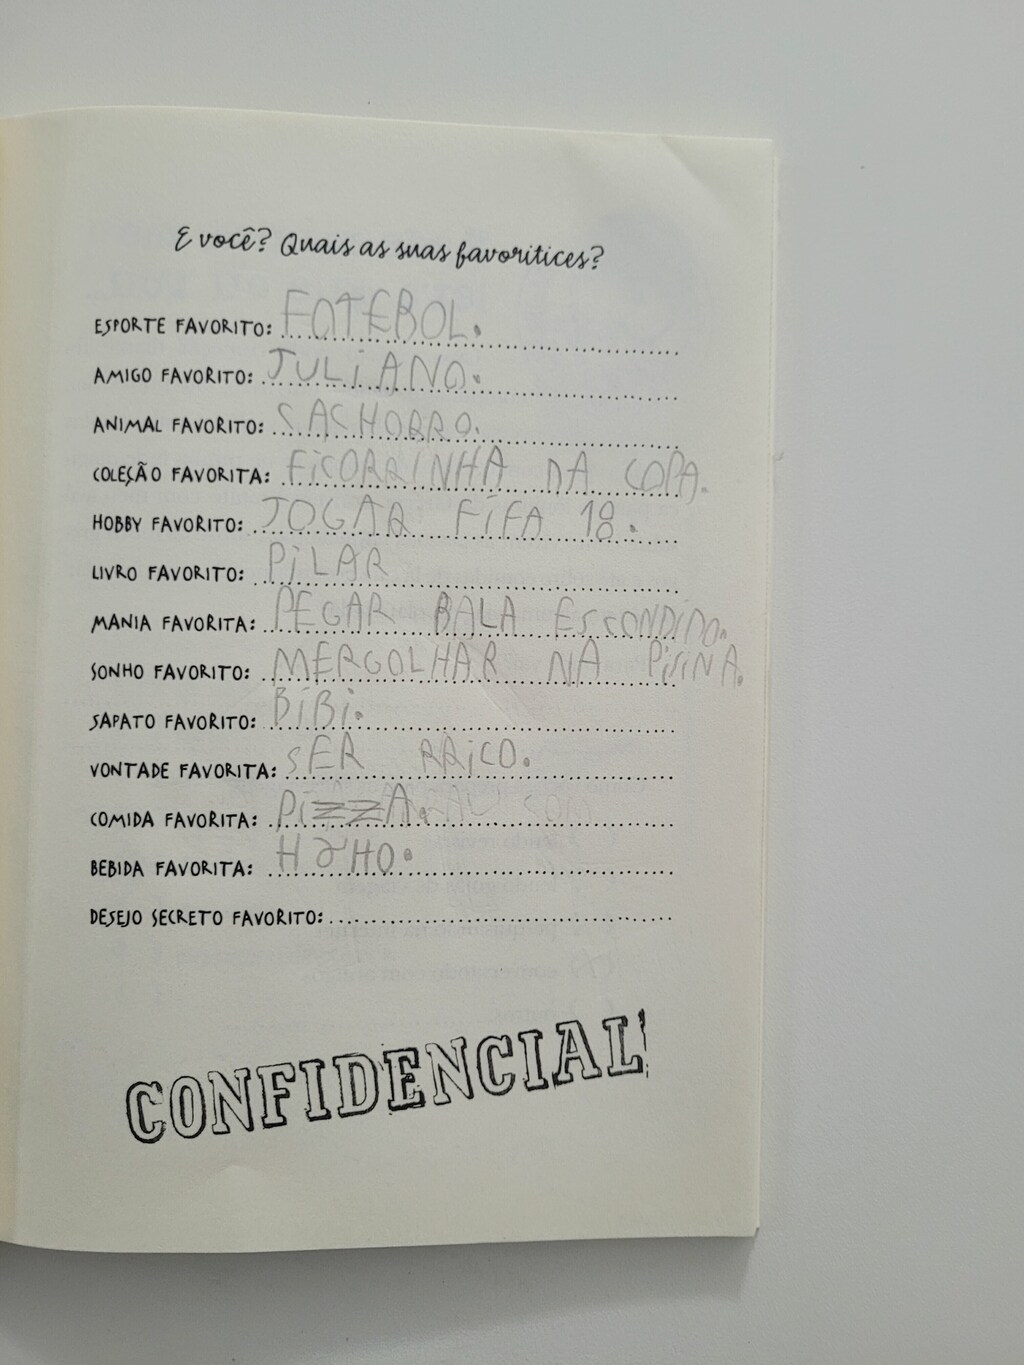 E você? Quais as suas favoritices?
ESPORTE FAVORITO: FOTEBOL.
AMIGO FAVORITO: JULIANO.
ANIMAL FAVORITO: SACHORRO.
COLEÇÃO FAVORITA: FICORRINHA DA COPA.
HOBBY FAVORITO: JOGAR FIFA 18.
LIVRO FAVORITO: PILAR
MANIA FAVORITA: PEGAR BALA ESCONDIDO.
SONHO FAVORITO: MERGOLHAR NA PISINA.
SAPATO FAVORITO: BIBI.
VONTADE FAVORITA: SER RRICO.
COMIDA FAVORITA: PIZZA.
BEBIDA FAVORITA:
DESEJO SECRETO FAVORITO:
CONFIDENCIAL